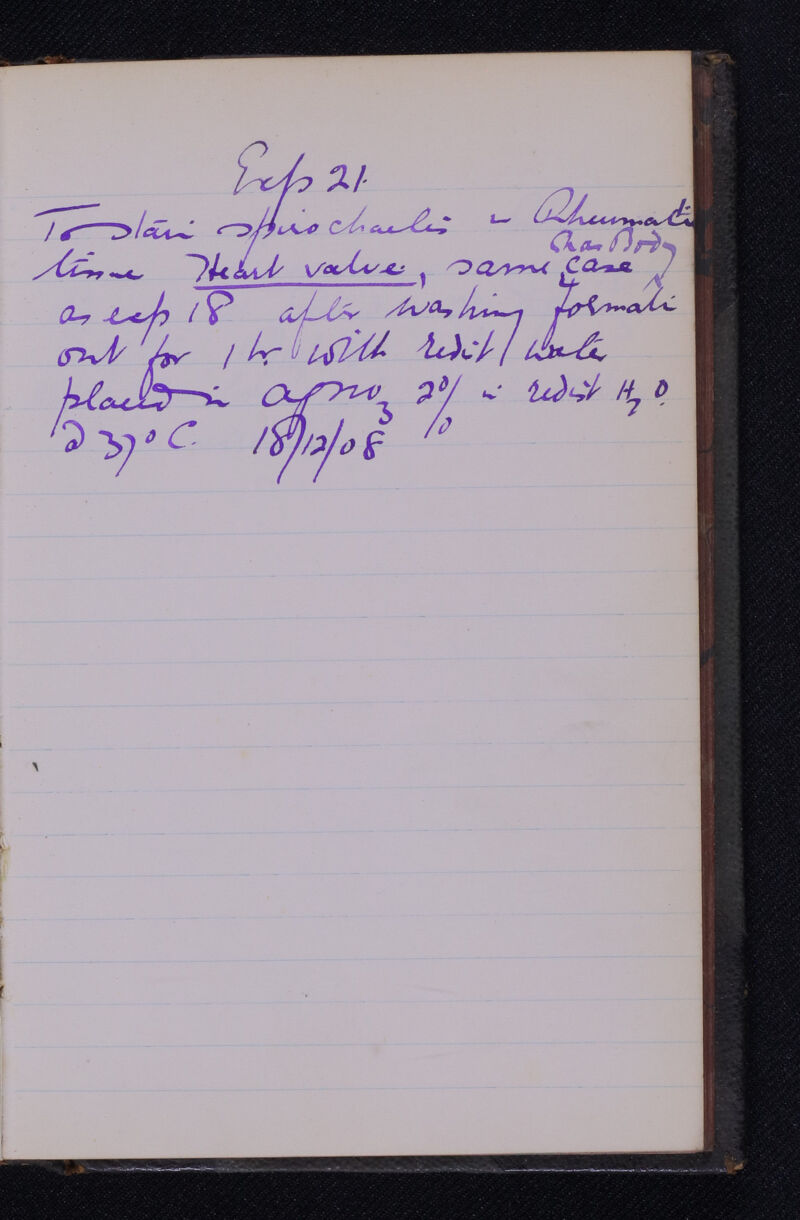 Exp 21.
To stain spirochaetes in Rheumatic
Chas Body
tissue Heart valve, same case
as exp 18 after washing formalin
out for 1 hr. with redist water
placed in AgNO3 2% in redist H2O.
@ 37° C. 18/12/08